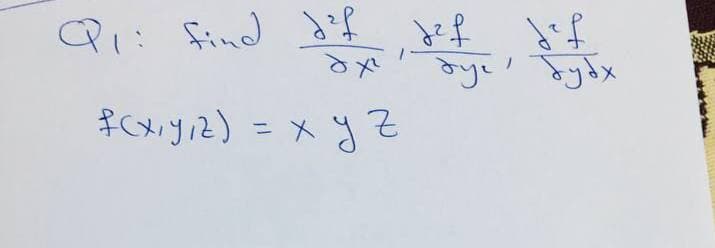 Q1: find ∂²f/∂x², ∂²f/∂y², ∂²f/∂y∂x
f(x,y,z) = x y z